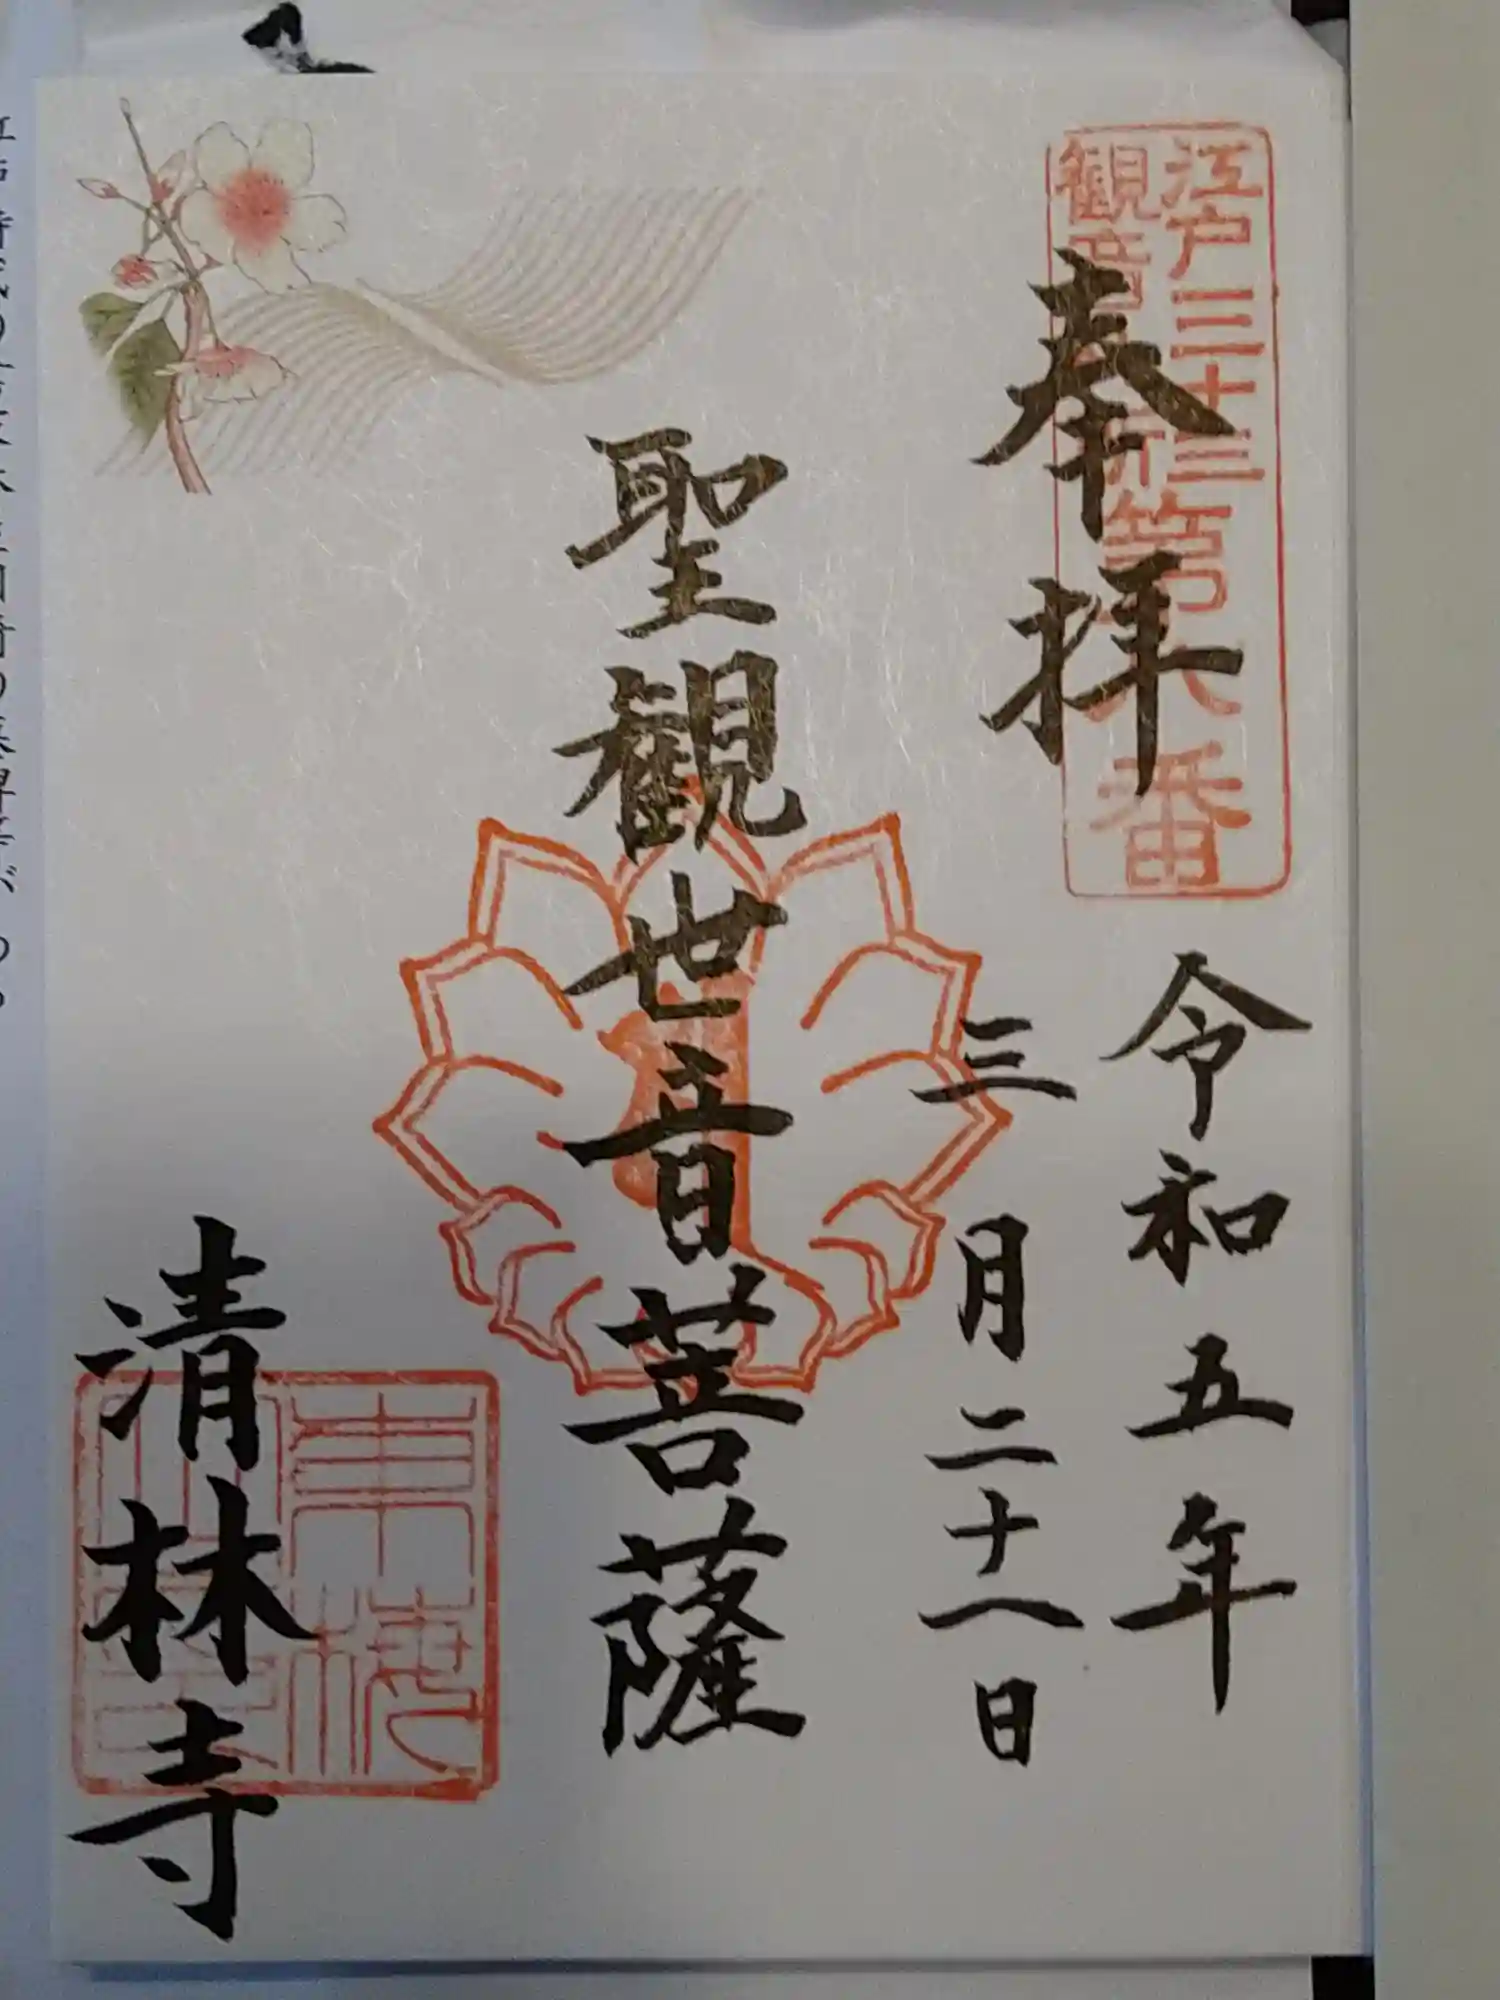 奉拝
江戸三十三
観音札所第八番
令和五年
三月二十八日
聖観世音菩薩
清林寺